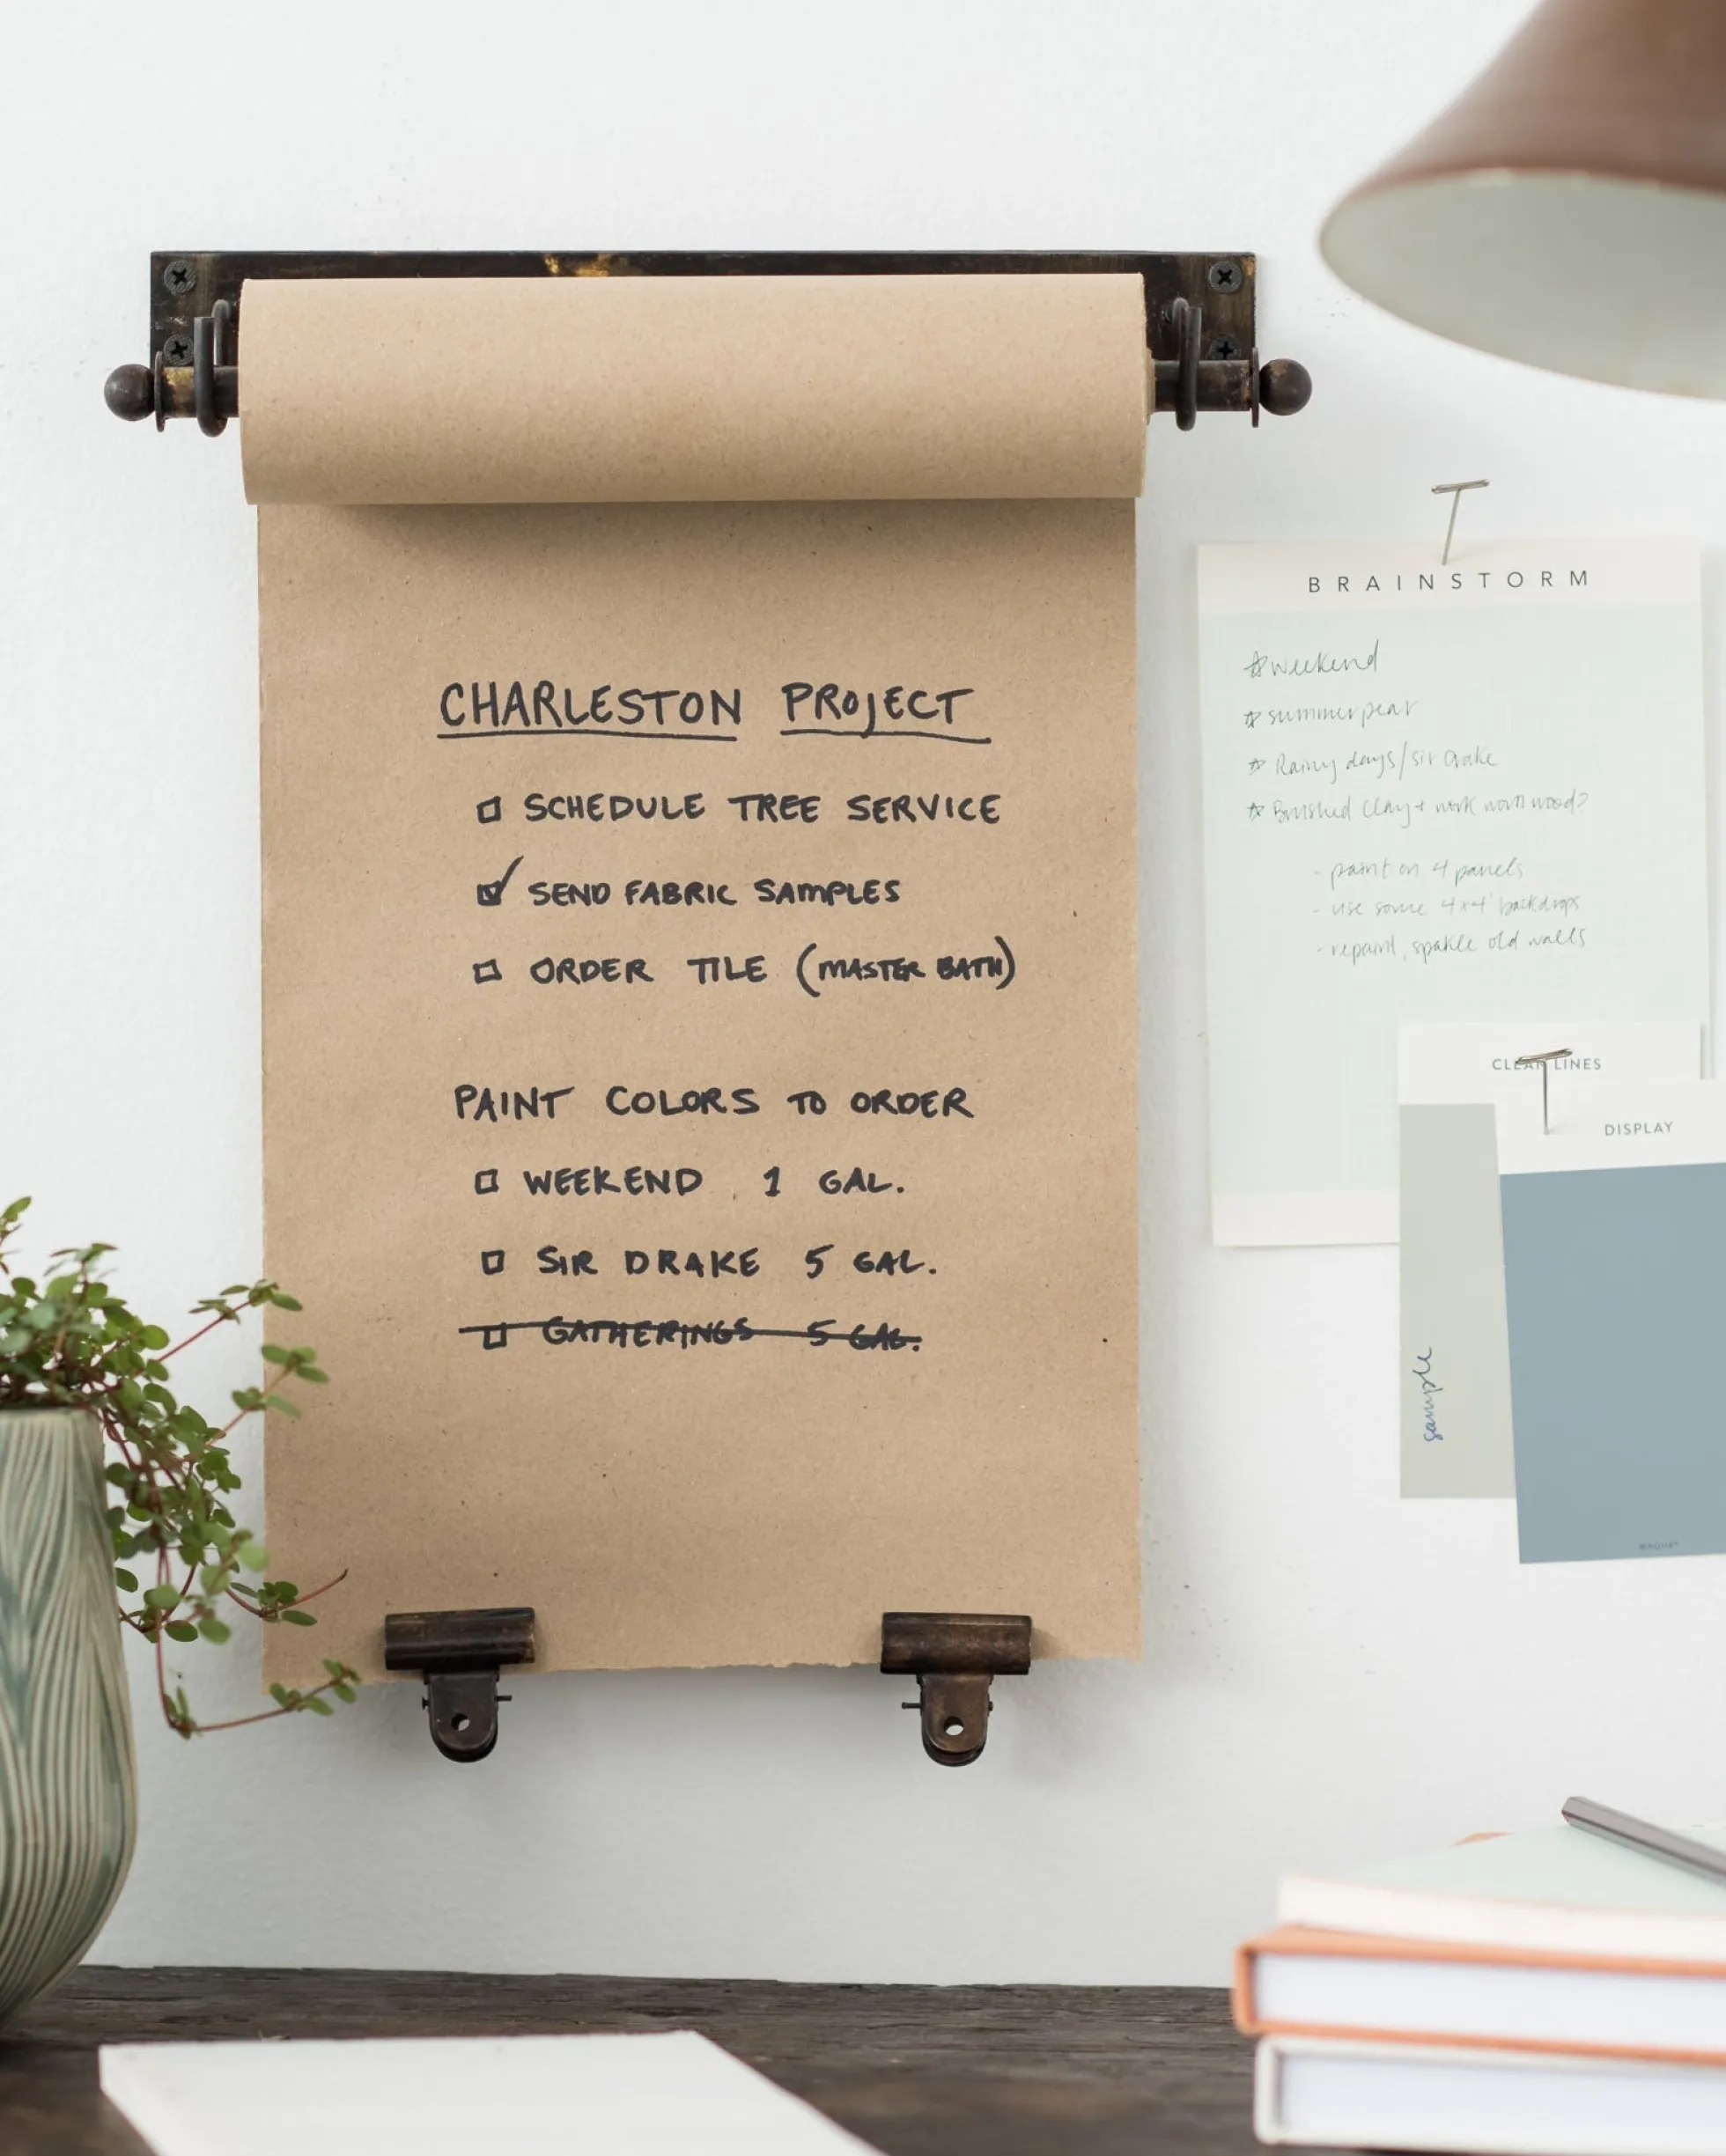 CHARLESTON PROJECT
SCHEDULE TREE SERVICE
SEND FABRIC SAMPLES
ORDER TILE (MASTER BATH)
PAINT COLORS TO ORDER
WEEKEND 1 GAL.
SIR DRAKE 5 GAL.
GATHERINGS 5 GAL.
BRAINSTORM
weekend
summer pear
Rainy days/sir Drake
Brushed Clay + work worn wood?
- paint on 4 panels
- use some 4x4' backdrops
- repaint, spakle old walls
CLEAN LINES
DISPLAY
sample
MAGNET